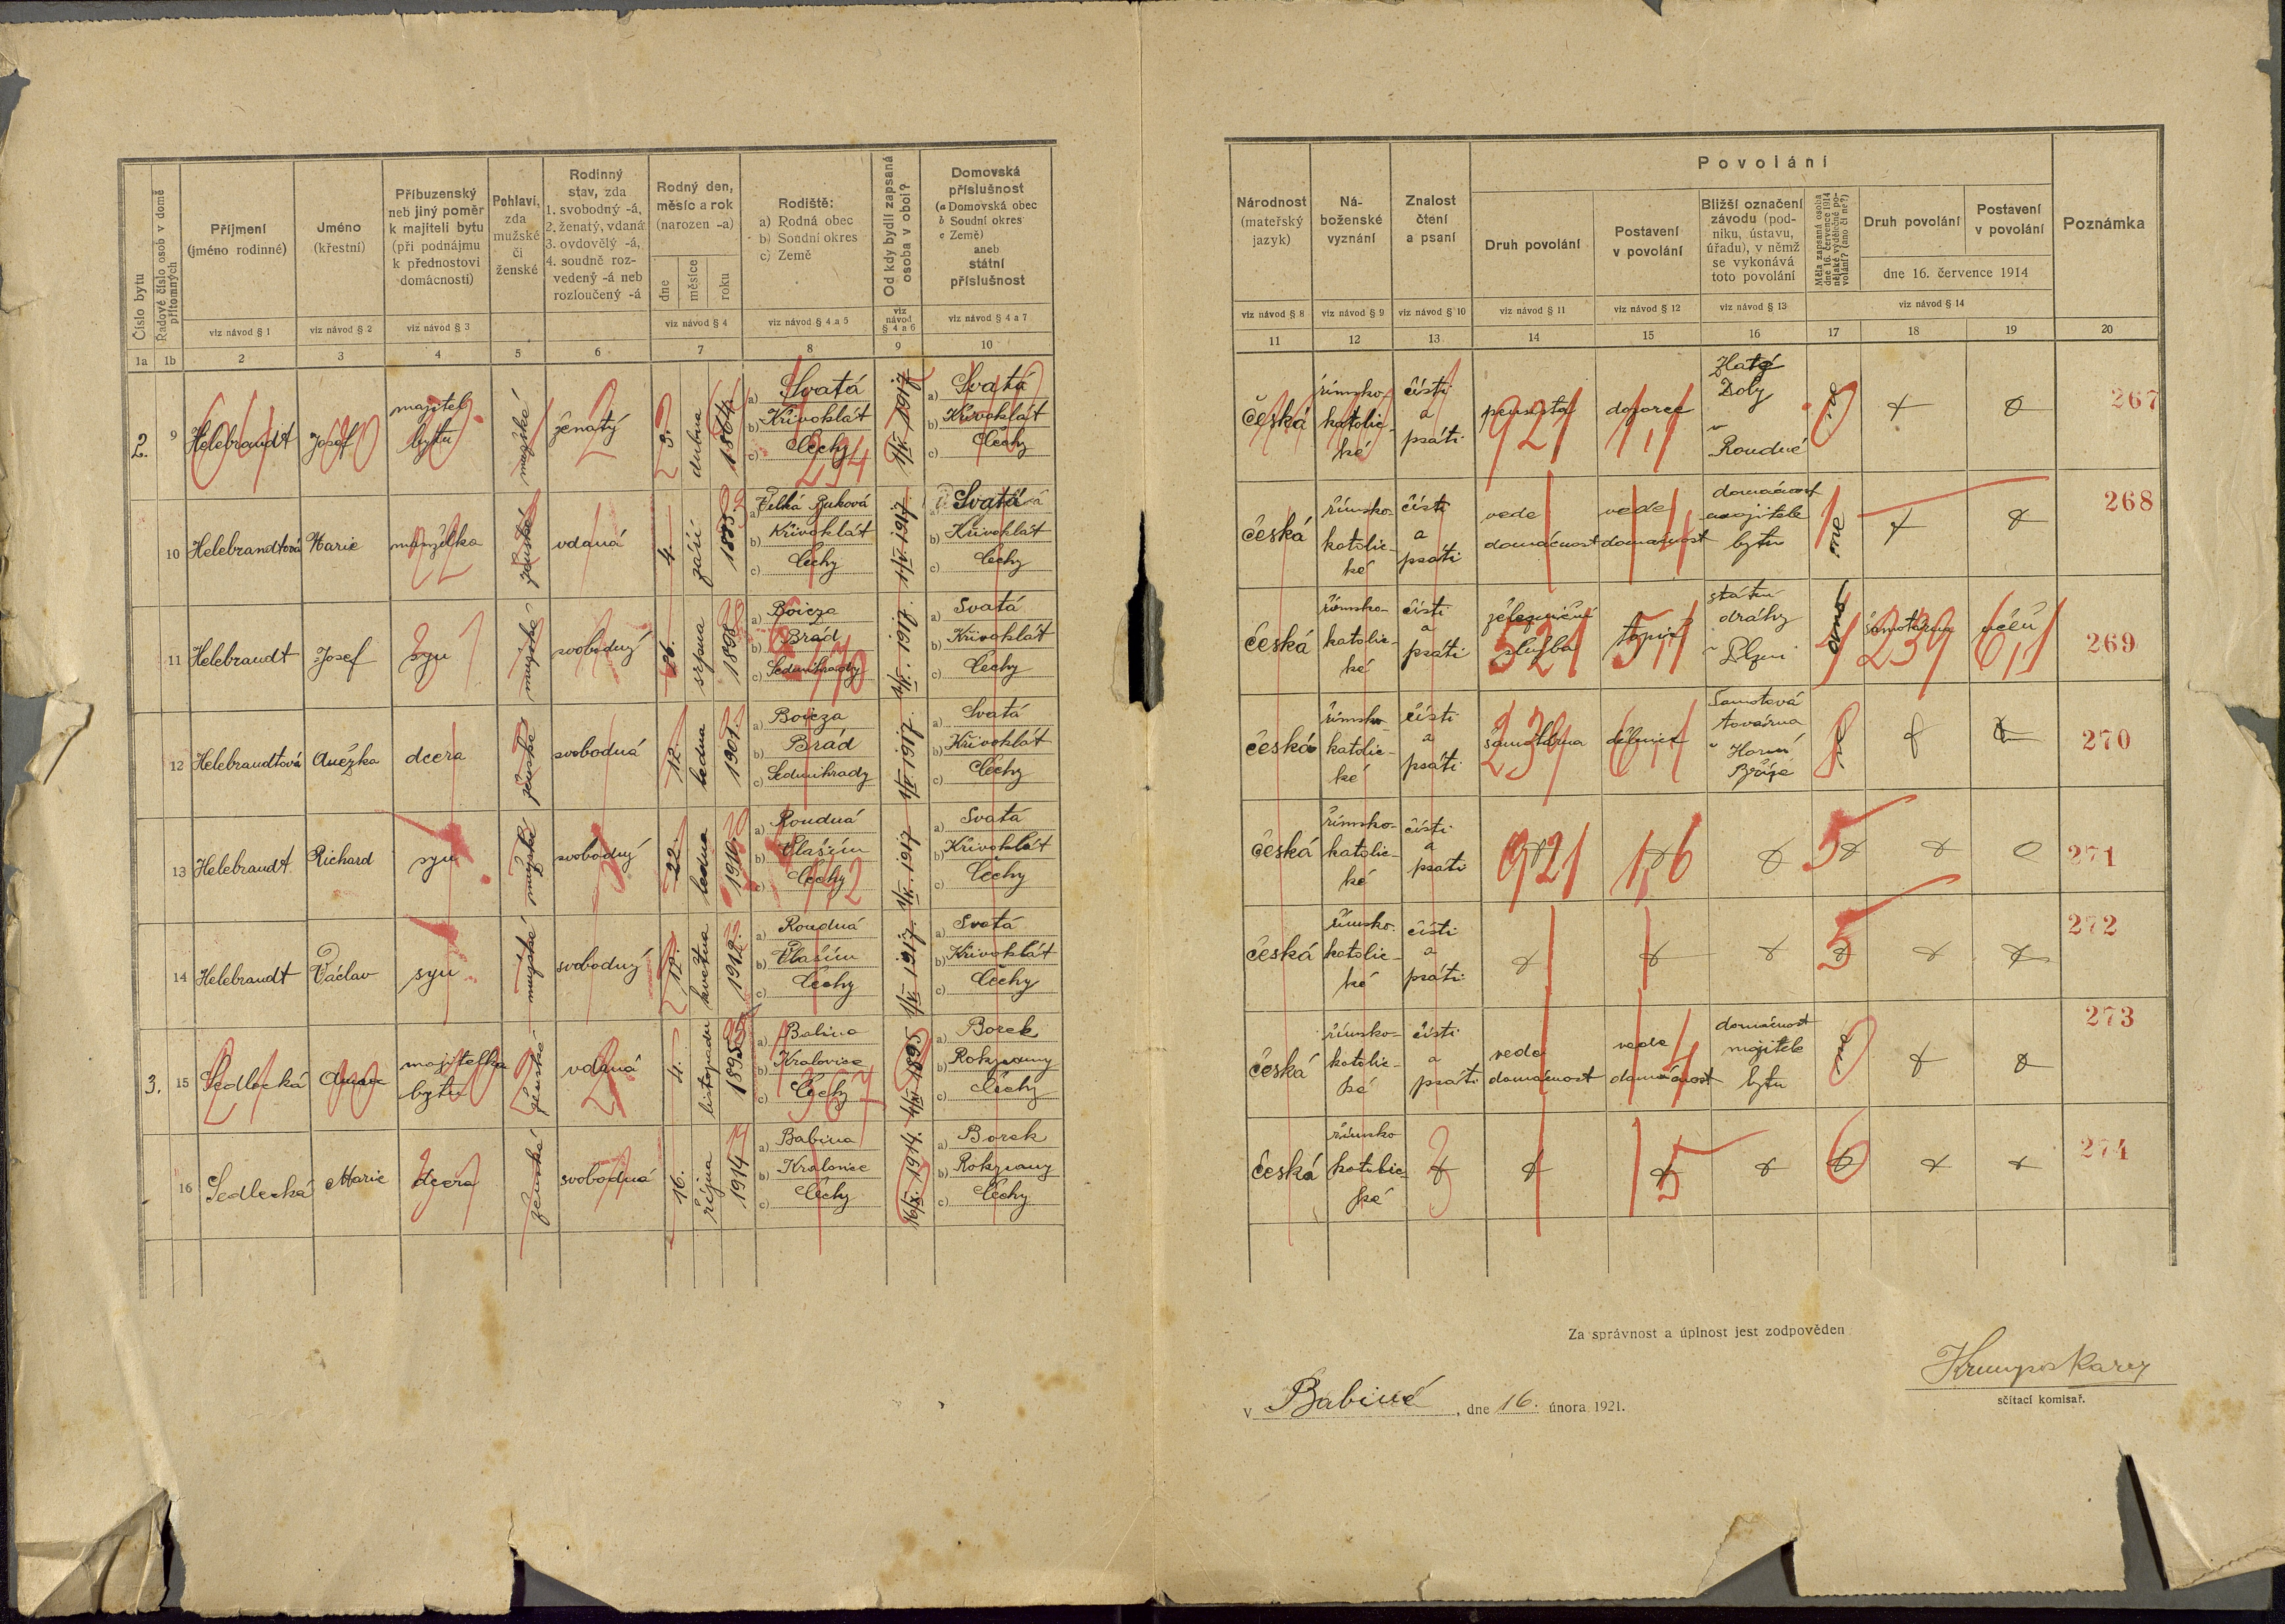 Číslo bytu
Řadové číslo osob v domě přítomných
Příjmení
(jméno rodinné)
viz návod § 1
Jméno
(křestní)
viz návod § 2
Příbuzenský
neb jiný poměr
k majiteli bytu
(při podnájmu
k přednostovi
domácnosti)
viz návod § 3
Pohlaví,
zda
mužské
či
ženské
Rodinný
stav, zda
1. svobodný -á,
2. ženatý, vdaná
3. ovdovělý -á,
4. soudně roz-
vedený -á neb
rozloučený -á
Rodný den,
měsíc a rok
(narozen -a)
dne
měsíce
roku
viz návod § 4
Rodiště:
a) Rodná obec
b) Soudní okres
c) Země
viz návod § 4 a 5
Od kdy bydlí zapsaná
osoba v obci?
viz
návod
§ 4 a 6
Domovská
příslušnost
(a Domovská obec
b Soudní okres
c Země)
aneb
státní
příslušnost
viz návod § 4 a 7
1a 1b 2 3 4 5 6 7 8 9 10
2. 9 Helebrandt Josef majitel bytu mužské ženatý 3. dubna 1864
a) Svatá
b) Křivoklát
c) Čechy
1/IV. 1917
a) Svatá
b) Křivoklát
c) Čechy
10 Helebrandtová Marie manželka ženské vdaná 4. září
a) Velká Buková
b) Křivoklát
c) Čechy
1/IV. 1917
a) Svatá
b) Křivoklát
c) Čechy
11 Helebrandt Josef syn mužské svobodný 26. srpna 1898
a) Boicza
b) Brád
c) Sedmihrady
1/IV. 1917
a) Svatá
b) Křivoklát
c) Čechy
12 Helebrandtová Anežka dcera ženské svobodná 12. ledna 1901
a) Boicza
b) Brád
c) Sedmihrady
1/IV. 1917
a) Svatá
b) Křivoklát
c) Čechy
13 Helebrandt Richard syn mužské svobodný 22. ledna 1910
a) Roudná
b) Vlašim
c) Čechy
1/IV. 1917
a) Svatá
b) Křivoklát
c) Čechy
14 Helebrandt Václav syn mužské svobodný 12. května 1912
a) Roudná
b) Vlašim
c) Čechy
1/IV. 1917
a) Svatá
b) Křivoklát
c) Čechy
3. 15 Sedlecká majitelka bytu ženské vdaná 4. listopadu 1895
a) Babina
b) Kralovice
c) Čechy
1895
a) Borek
b) Rokycany
c) Čechy
16 Sedlecká Marie dcera ženské svobodná 16. října 1914
a) Babina
b) Kralovice
c) Čechy
1914.
a) Borek
b) Rokycany
c) Čechy
Povolání
Národnost
(mateřský
jazyk)
viz návod § 8
Ná-
boženské
vyznání
viz návod § 9
Znalost
čtení
a psaní
viz návod § 10
Druh povolání
viz návod § 11
Postavení
v povolání
viz návod § 12
Bližší označení
závodu (pod-
niku, ústavu,
úřadu), v němž
se vykonává
toto povolání
viz návod § 13
Měla zapsaná osoba
dne 16. července 1914
nějaké výdělečné po-
volání? (ano či ne?)
Druh povolání
Postavení
v povolání
dne 16. července 1914
viz návod § 14
Poznámka
11 12 13 14 15 16 17 18 19 20
česká římsko-katolic-ké čísti a psáti pensista dozorce Zlaté Doly v Roudné 267
921 1,1
česká římsko-katolic-ké čísti a psáti vede domácnost vede domácnost domácnost majitele bytu ne 268
česká římsko-katolic-ké čísti a psáti železniční služba topič státní dráhy v Plzni ano 269
521 5,1 239 6,1
česká římsko-katolic-ké čísti a psáti šamotárna dělnice Šamotová továrna v Horní Bříze ne 270
239 6,1
česká římsko-katolic-ké čísti a psáti 271
921 1,6 5
česká římsko-katolic-ké čísti a psáti 272
5
česká římsko-katolic-ké čísti a psáti vede domácnost vede domácnost domácnost majitele bytu ne 273
česká římsko-katolic-ké 274
3 5 6
Za správnost a úplnost jest zodpověden
v Babině, dne 16. února 1921.
sčítací komisař.